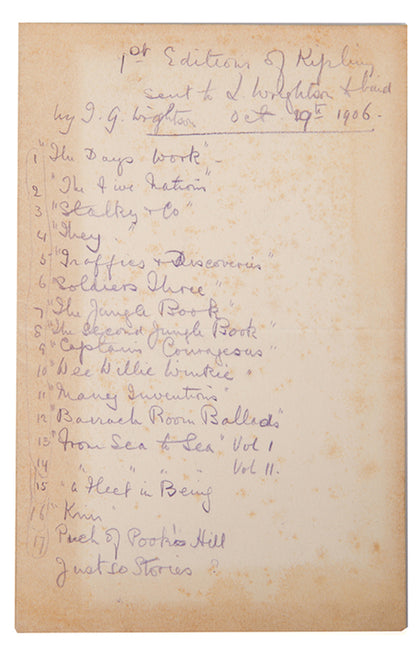 1st Editions of Kipling
sent to L Wrightson & paid
by T. G. Wrightson Oct 19th 1906.
1 "The Days Work" -
2 "The Five Nations"
3 "Stalky & Co"
4 "They"
5 "Traffics & Discoveries"
6 "Soldiers Three"
7 "The Jungle Book"
8 "The Second Jungle Book"
9 "Captains Courageous"
10 "Wee Willie Winkie"
11 "Many Inventions"
12 "Barrack Room Ballads"
13 "From Sea to Sea" Vol I
14 " " " " Vol II.
15 "A Fleet in Being
16 "Kim"
17 Puck of Pook's Hill
Just So Stories